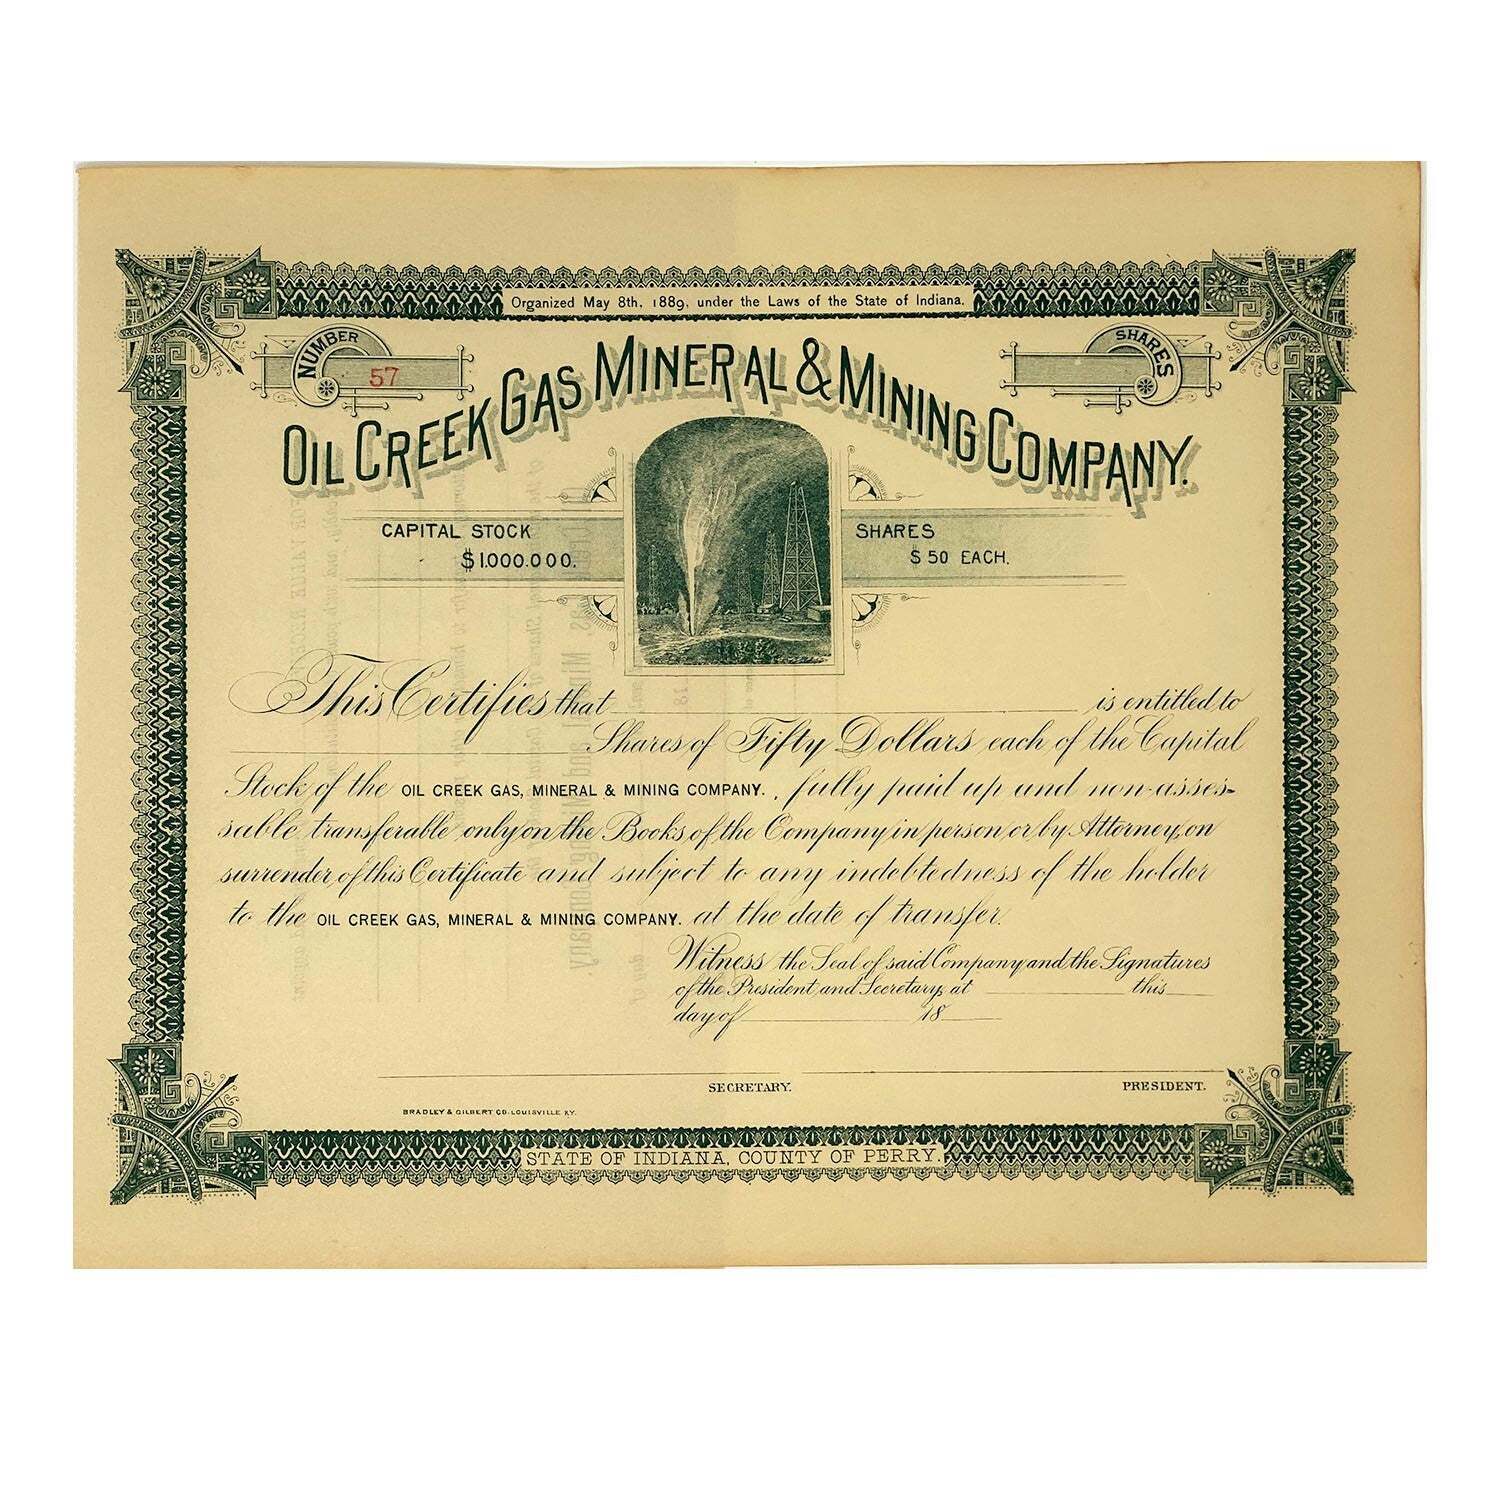 Organized May 8th, 1889, under the Laws of the State of Indiana.
NUMBER
57
SHARES
OIL CREEK GAS MINERAL & MINING COMPANY.
CAPITAL STOCK
$1.000.000.
SHARES
$ 50 EACH.
This Certifies that is entitled to
Shares of Fifty Dollars each of the Capital
Stock of the OIL CREEK GAS, MINERAL & MINING COMPANY., fully paid up and non-asses-
sable transferable only on the Books of the Company in person or by Attorney, on
surrender of this Certificate and subject to any indebtedness of the holder
to the OIL CREEK GAS, MINERAL & MINING COMPANY. at the date of transfer.
Witness the Seal of said Company and the Signatures
of the President and Secretary, at this
day of 18
SECRETARY.
PRESIDENT.
BRADLEY & GILBERT CO. LOUISVILLE KY.
STATE OF INDIANA, COUNTY OF PERRY.